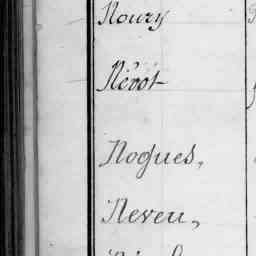 Noury
Névot
Nogues,
Neveu,